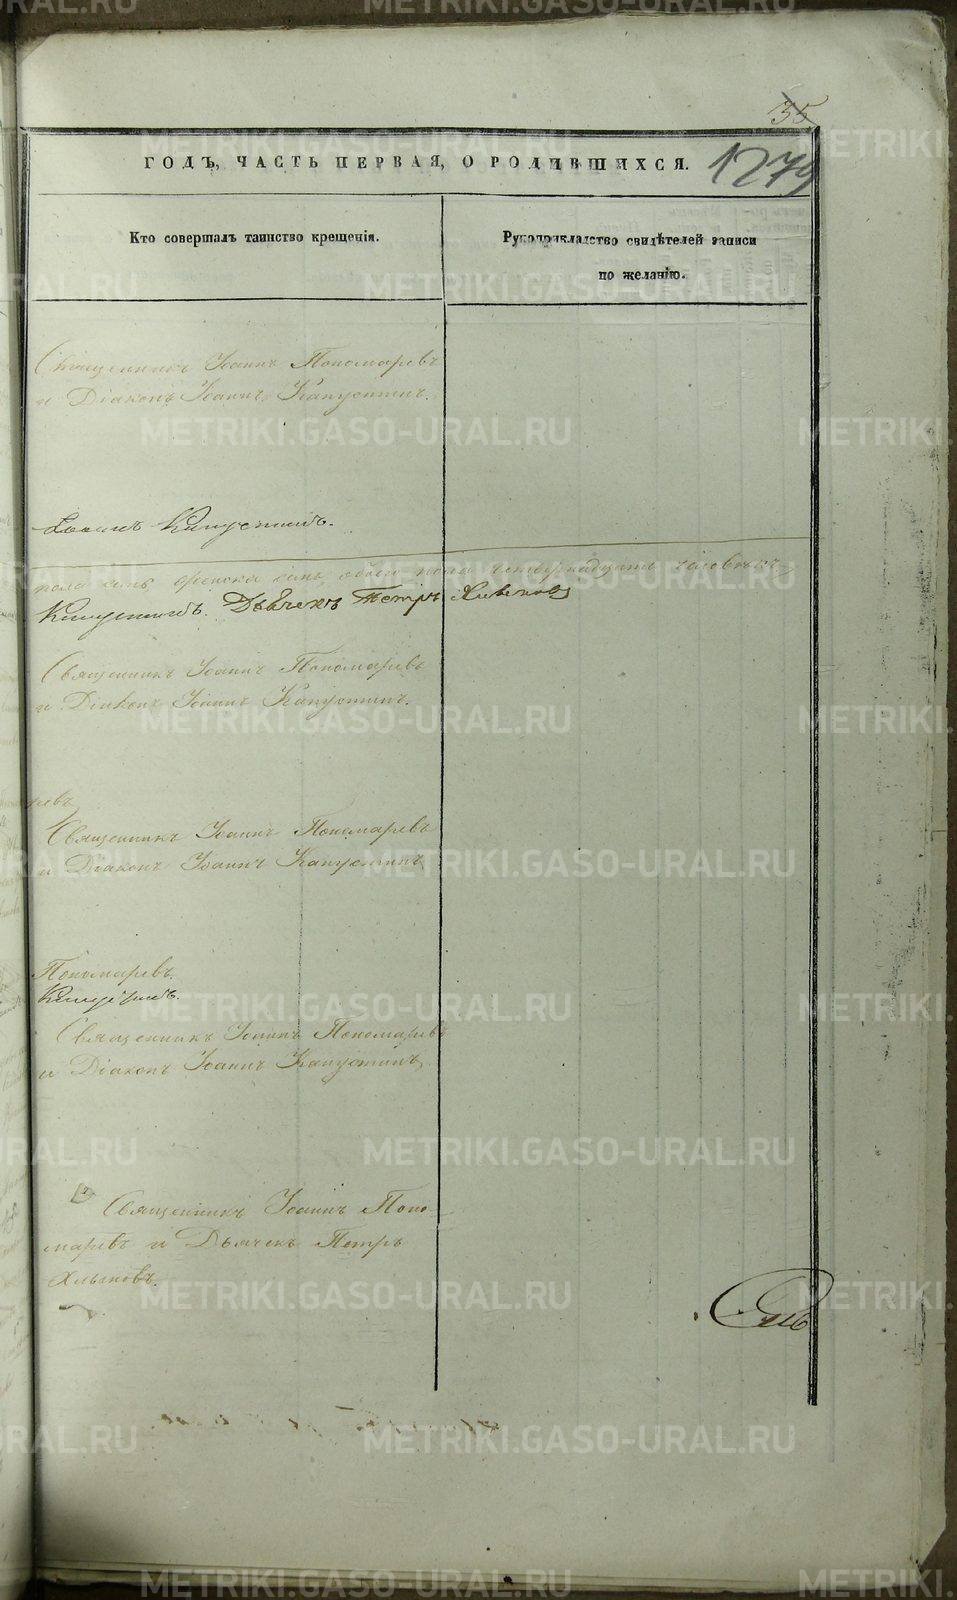 35
ГОДЪ, ЧАСТЬ ПЕРВАЯ, О РОДИВШИХСЯ.
1279
Кто совершалъ таинство крещенія.
Рукоприкладство свидѣтелей записи
по желанію.
Священникъ Іоаннъ Пономаревъ
и Діаконъ Іоаннъ Капустинъ.
Іоаннъ Капустинъ.
пола семь, женска семь, обоего пола четырнадцать человѣкъ
Капустинъ. Дьячекъ Петръ Хлыновъ
Священникъ Іоаннъ Пономаревъ
и Діаконъ Іоаннъ Капустинъ.
ревъ
Священникъ Іоаннъ Пономаревъ
и Діаконъ Іоаннъ Капустинъ
Пономаревъ.
Капустинъ.
Священникъ Іоаннъ Пономаревъ
и Діаконъ Іоаннъ Капустинъ
Священникъ Іоаннъ Поно
маревъ и Дьячекъ Петръ
Хлыновъ.
METRIKI.GASO-URAL.RU